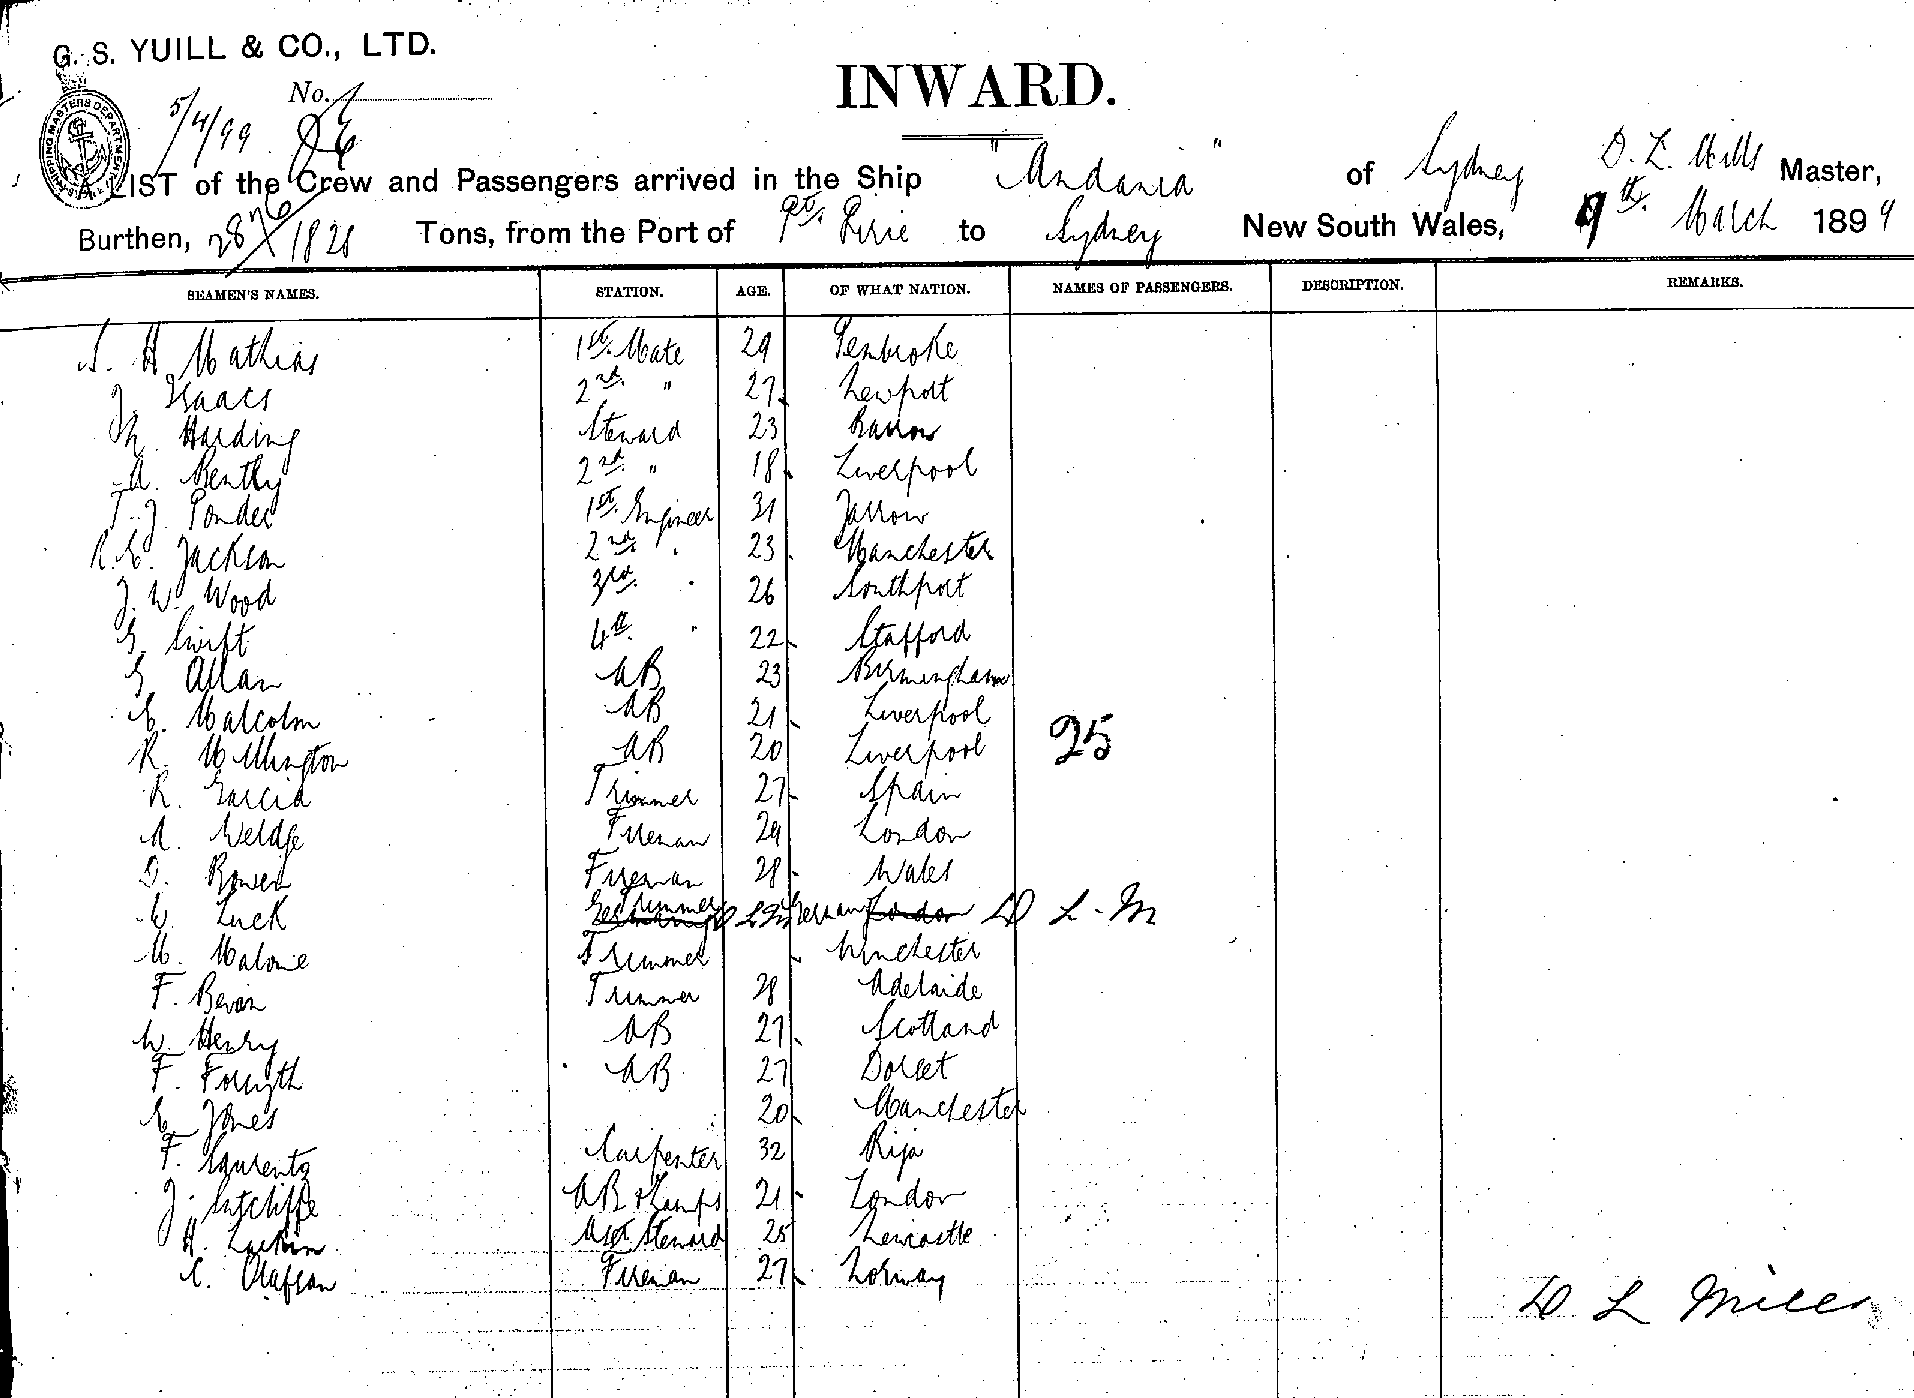 G. S. YUILL & CO., LTD.
No.
5/4/99 86
INWARD.
SHIPPING MASTERS DEPARTMENT
A LIST of the Crew and Passengers arrived in the Ship "Andania" of Sydney D. L. Mills Master,
Burthen, 2876/1828 Tons, from the Port of Pt. Pirie to Sydney New South Wales, 9th. March 1899
SEAMEN'S NAMES. STATION. AGE. OF WHAT NATION. NAMES OF PASSENGERS. DESCRIPTION. REMARKS.
S. H. Mathias 1st. Mate 29 Penbroke
J. Isaacs 2nd. " 27 Newport
Harding Steward 23 Barrow
A. Bently 2nd. " 18 Liverpool
T. J. Ponder 1st. Engineer 31 Jarrow
R. E. Jackson 2nd. " 23 Manchester
J. W. Wood 3rd. " 26 Southport
G. Swift 4th. " 22 Stafford
G. Allan AB 23 Birmingham
E. Malcolm AB 21 Liverpool
R. Wellington AB 20 Liverpool 25
R. Garcia Trimmer 27 Spain
A. Weldge Fireman 29 London
D. Bowen Fireman 28 Wales
W. Luck Trimmer D L M German London D L. M
M. Malone Trimmer Winchester
F. Bevan Trimmer 28 Adelaide
W. Henry AB 27 Scotland
F. Forsyth AB 27 Dorset
E. Jones 20 Manchester
F. Laurentz Carpenter 32 Riga
J. Sutcliffe AB & Lamps 21 London
H. Larkin Asst Steward 25 Newcastle
C. Olafson Fireman 27 Norway
D. L Mills